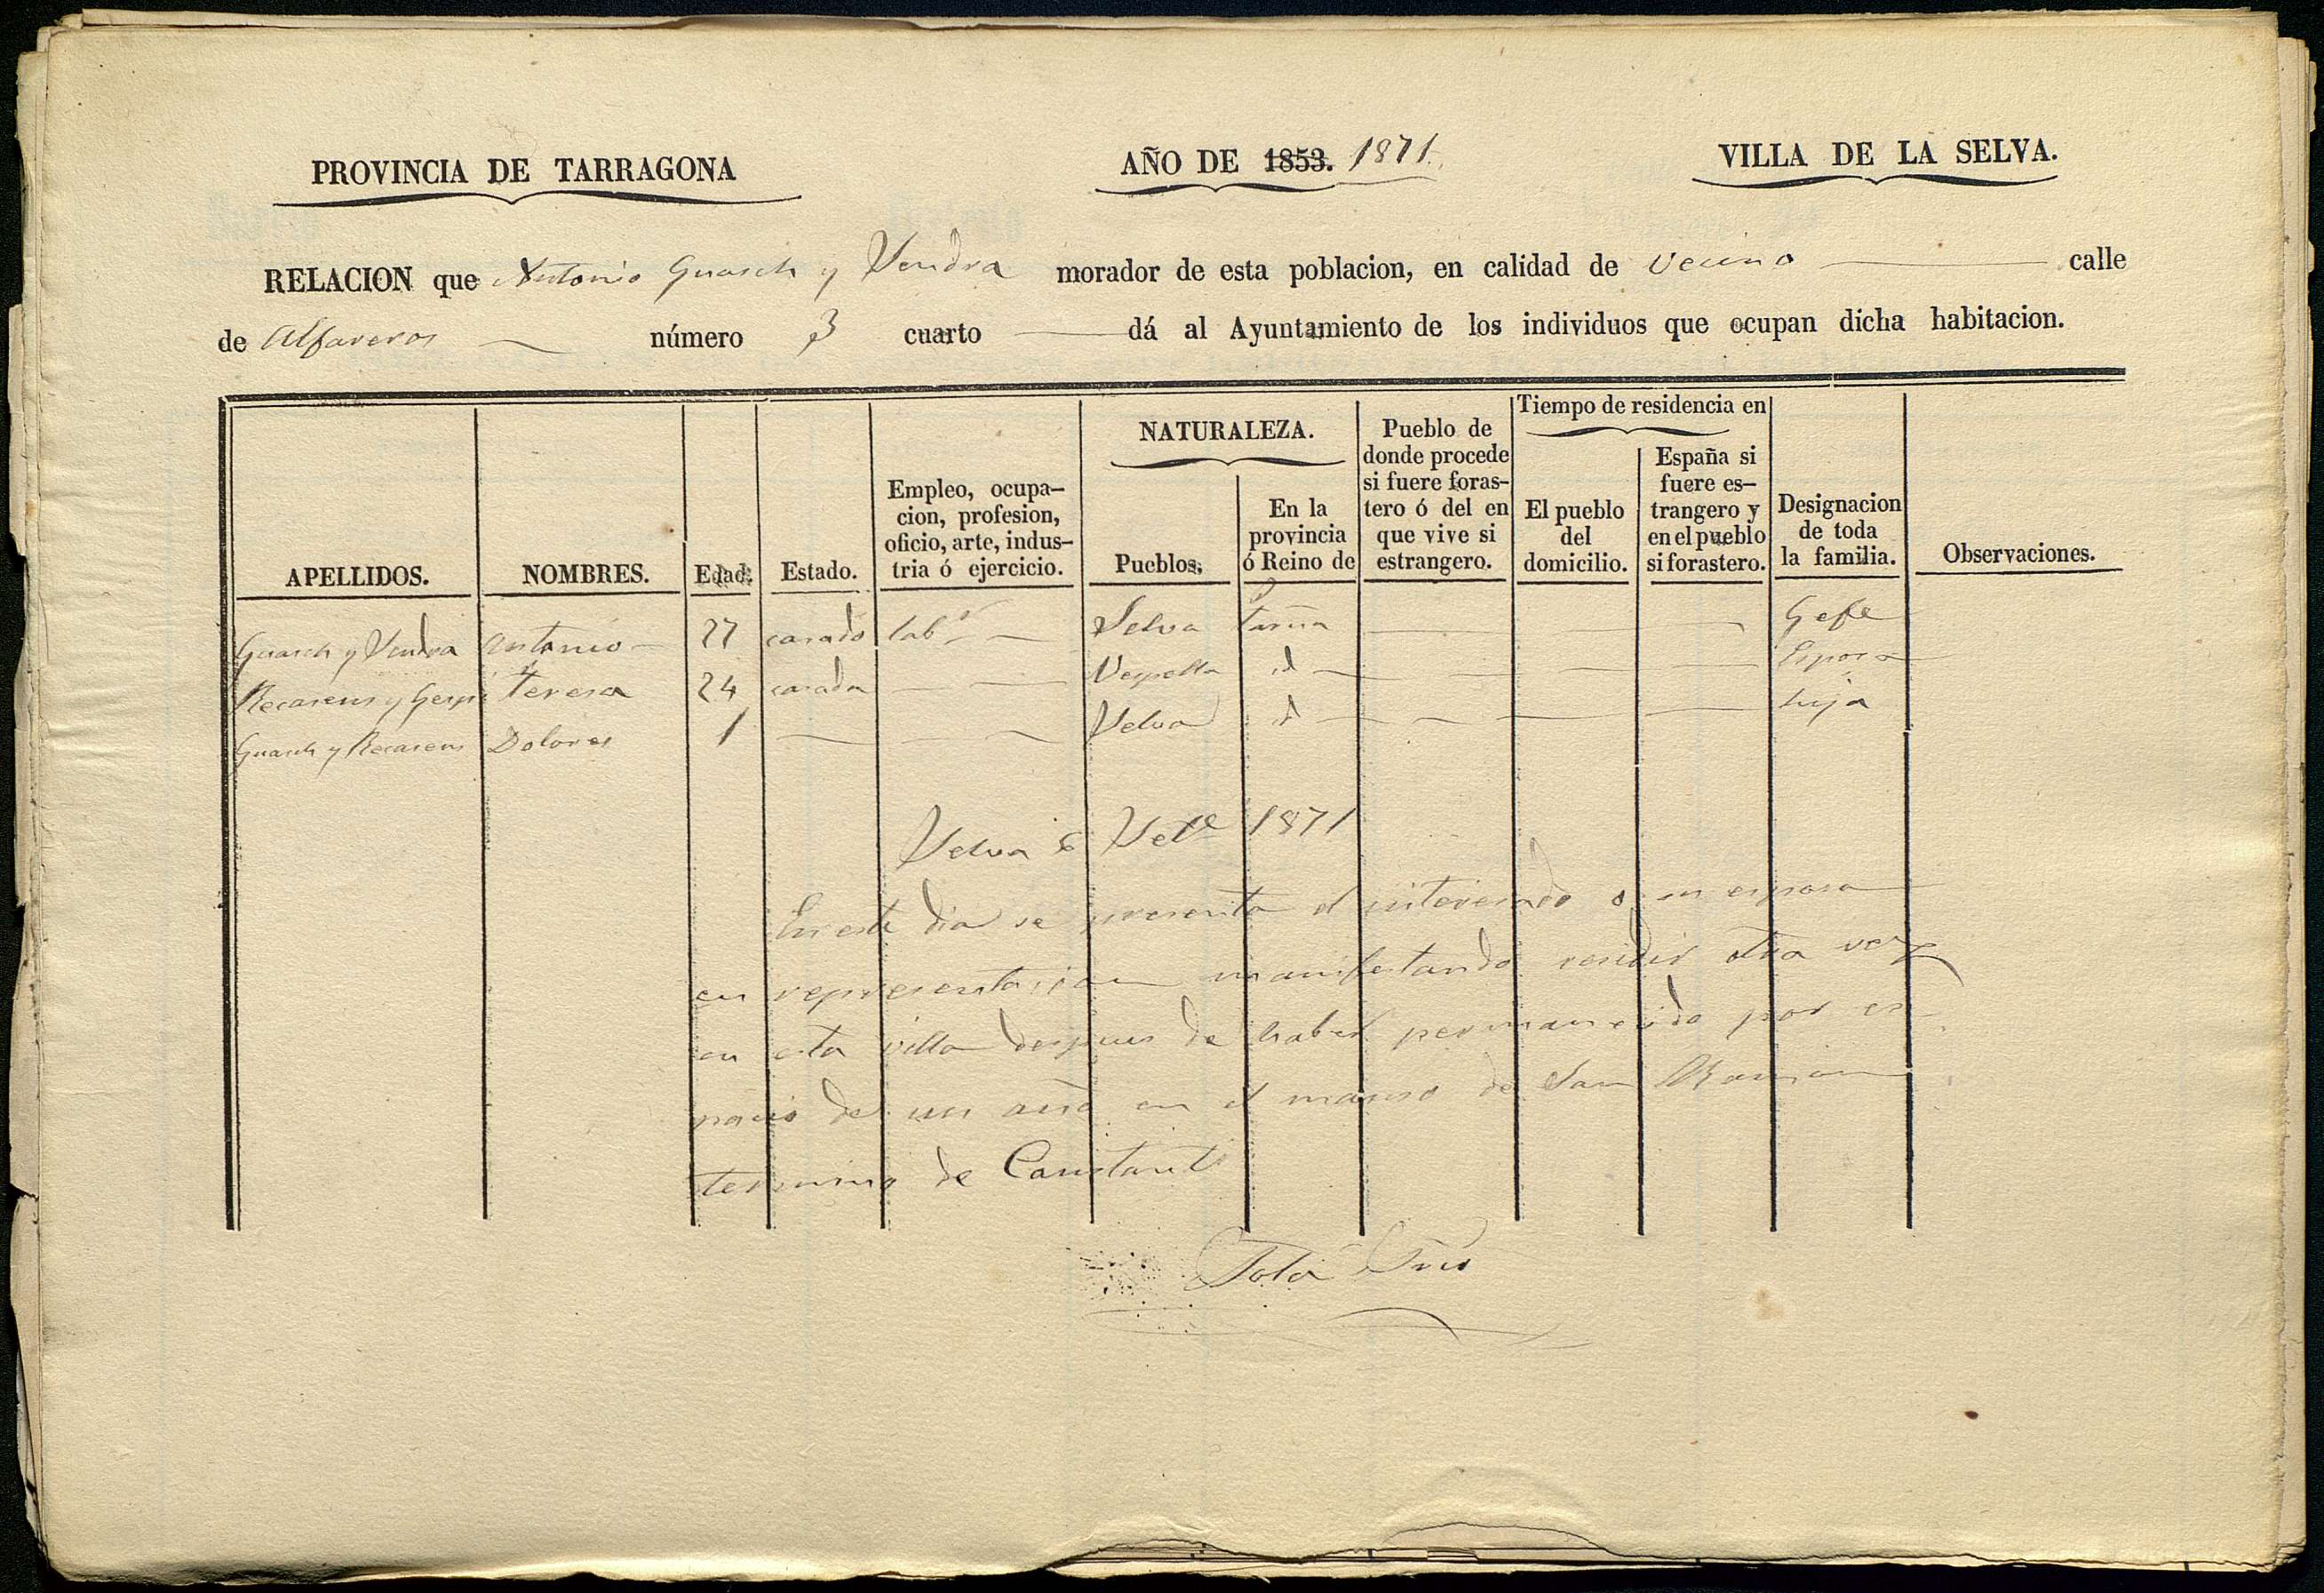 PROVINCIA DE TARRAGONA
AÑO DE 1853. 1871.
VILLA DE LA SELVA.
RELACION que Antonio Guasch y Vendra morador de esta poblacion, en calidad de vecino calle
de Alfareros número 3 cuarto dá al Ayuntamiento de los individuos que ocupan dicha habitacion.
APELLIDOS.
NOMBRES.
Edad.
Estado.
Empleo, ocupa-
cion, profesion,
oficio, arte, indus-
tria ó ejercicio.
NATURALEZA.
Pueblos.
En la
provincia
ó Reino de
Pueblo de
donde procede
si fuere foras-
tero ó del en
que vive si
estrangero.
Tiempo de residencia en
El pueblo
del
domicilio.
España si
fuere es-
trangero y
en el pueblo
si forastero.
Designacion
de toda
la familia.
Observaciones.
Guasch y Vendra Antonio 27 casado labr Selva Tarrna Gefe
Recasens y Teresa 24 casada Vespella id Esposa
Guasch y Recasens Dolores 1 Selva id hija
Selva 6 Sete 1871
En este dia se presenta el interesado o su esposa
en representacion manifestando residir otra vez
en esta villa despues de haber permanecido por es-
pacio de un año en el manso de San Ramon
termino de Constanti